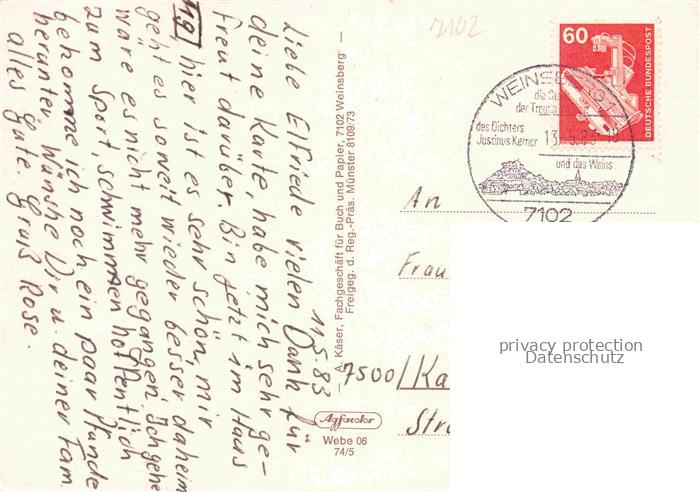 11.5.83
Liebe Elfriede vielen Dank für
deine Karte habe mich sehr ge-
freut darüber. Bin jetzt im Haus
hier ist es sehr schön, mir
geht es soweit wieder besser daheim
wäre es nicht mehr gegangen. Ich gehe
zum Sport schwimmen hoffentlich
bekomme ich noch ein paar Pfunde
herunter. Wünsche Dir u. deiner Fam.
alles gute. Gruß Rose.
A. Käser, Fachgeschäft für Buch und Papier, 7102 Weinsberg —
Freigeg. d. Reg.-Präs. Münster 8109/73
Agfacolor
Webe 06
74/5
7102
60
DEUTSCHE BUNDESPOST
WEINSBERG
die
der
des Dichters
Justinus Kerner
13.5.83
und des Weins
7102
An
Frau
7500/Ka
Str
privacy protection
Datenschutz